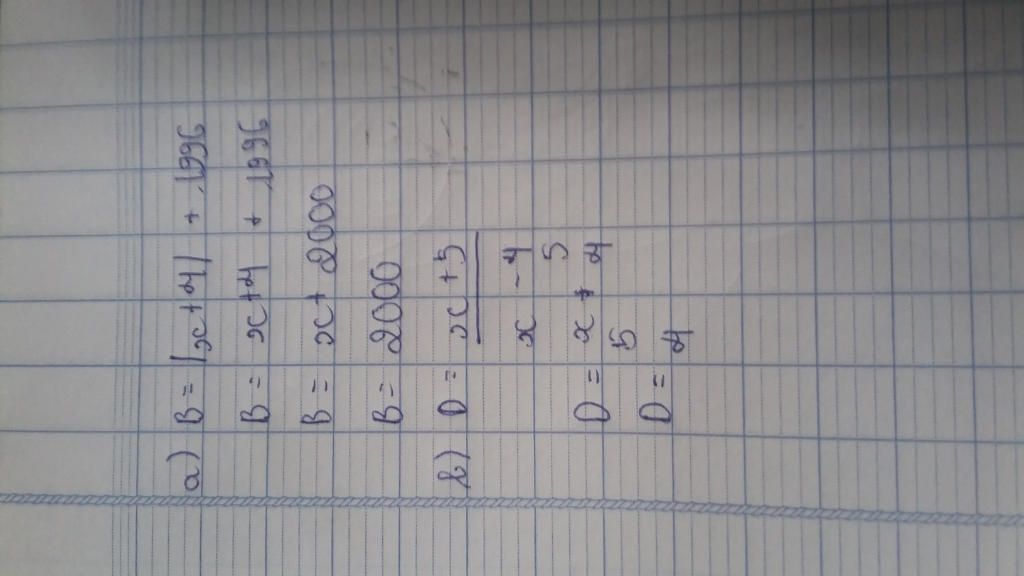 a) B = |x+4| + 1996
B = x+4 + 1996
B = x+ 2000
B = 2000
b) D = x + 5
x - 4
5
D = x + 4
5
D = 4